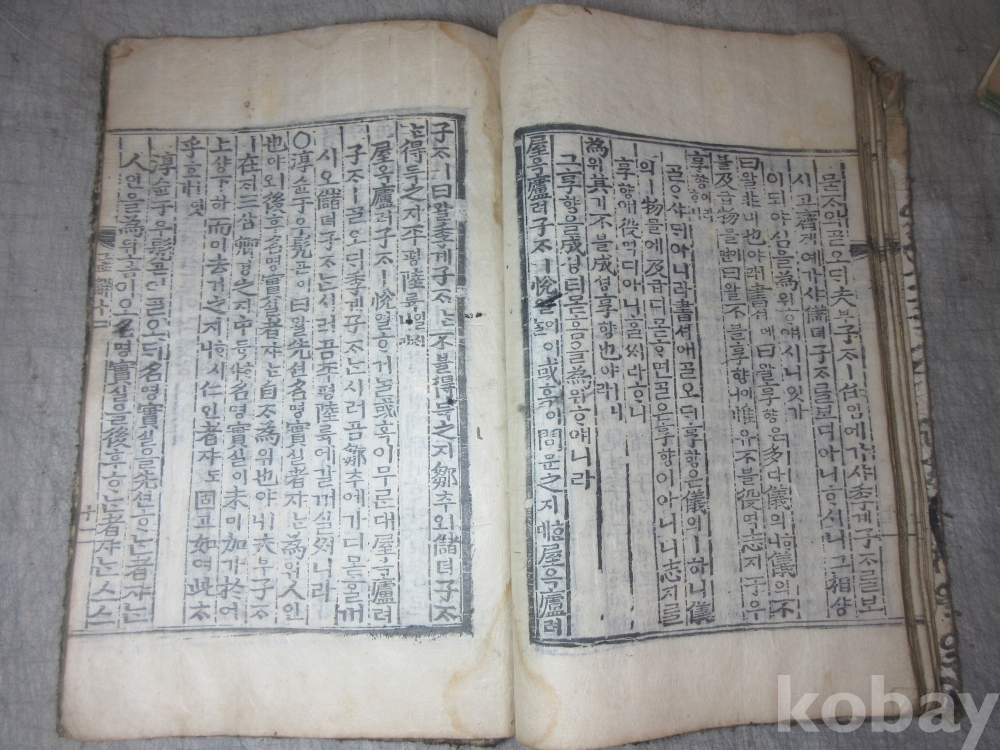 묻ᄌᆞ와ᄀᆞᆯ오ᄃᆡ夫부子ᄌᆞㅣ任임에가샤季계子ᄌᆞᄅᆞᆯ보
시고齊졔예가샤儲뎌子ᄌᆞᄅᆞᆯ보디아니ᄒᆞ시니그相샹
이되야심을為위ᄒᆞ얘시니잇가
曰왈非비也야ㅣ라書셔에曰왈享향은多다儀의니儀의不
블及급物믈이면曰왈不블享향이니惟유不블役역志지于우
享향이라ᄒᆞ니
ᄀᆞᆯᄋᆞ샤ᄃᆡ아니라書셔애ᄀᆞᆯ오ᄃᆡ享향은儀의ㅣ하니儀
의ㅣ物믈에及급디몯ᄒᆞ면ᄀᆞᆯ온享향이아니니志지ᄅᆞᆯ
享향애役역디아니ᄒᆞᆯᄉᆡ라ᄒᆞ니
為위其기不블成셩享향也야ㅣ니라
그享향을成셩티몯홈을為위ᄒᆞ얘니라
屋옥廬려子ᄌᆞㅣ悅열이어ᄂᆞᆯ或혹이問문之지ᄒᆞᆫ대屋옥廬려
子ᄌᆞㅣ曰왈季계子ᄌᆞᄂᆞᆫ不블得득之지鄒추ㅣ오儲뎌子ᄌᆞ
ᄂᆞᆫ得득之지平평陸륙일ᄉᆡ니라
屋옥廬려子ᄌᆞㅣ悅열ᄒᆞ거ᄂᆞᆯ或혹이무른대屋옥廬려
子ᄌᆞㅣᄀᆞᆯ오ᄃᆡ季계子ᄌᆞᄂᆞᆫ시러곰鄒추에가디몯ᄒᆞᆯ꺼
시오儲뎌子ᄌᆞᄂᆞᆫ시러곰平평陸륙에갈꺼실ᄉᆡ니라
○淳슌于우髡곤이曰왈先션名명實실者쟈ᄂᆞᆫ為위人인
也야ㅣ오後후名명實실者쟈ᄂᆞᆫ自ᄌᆞ為위也야ㅣ니夫부子ᄌᆞ
ㅣ在ᄌᆡ三삼卿경之지中듕ᄒᆞ샤名명實실이未미加가於어
上샹下하而이去거之지ᄒᆞ시니仁인者쟈도固고如여此ᄎᆞ
乎호ㅣ잇가
淳슌于우髡곤이ᄀᆞᆯ오ᄃᆡ名명實실을先션ᄒᆞᄂᆞᆫ者쟈ᄂᆞᆫ
人인을為위홈이오名명實실을後후ᄒᆞᄂᆞᆫ者쟈ᄂᆞᆫ스스
kobay